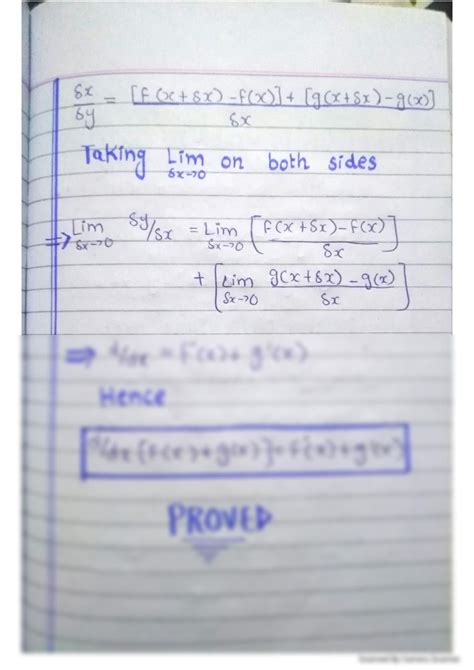 δx/δy = [f(x+δx)-f(x)]+[g(x+δx)-g(x)]/δx
Taking Lim δx→0 on both sides
⇒ Lim δx→0 δy/δx = Lim δx→0 [f(x+δx)-f(x)/δx]
+ [Lim δx→0 g(x+δx)-g(x)/δx]
⇒ d/dx = f'(x)+g'(x)
Hence
d/dx[f(x)+g(x)]=f'(x)+g'(x)
PROVED